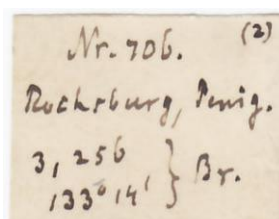 Nr. 706. (2)
Rochsburg, Penig.
3,256 } Br.
133° 14'